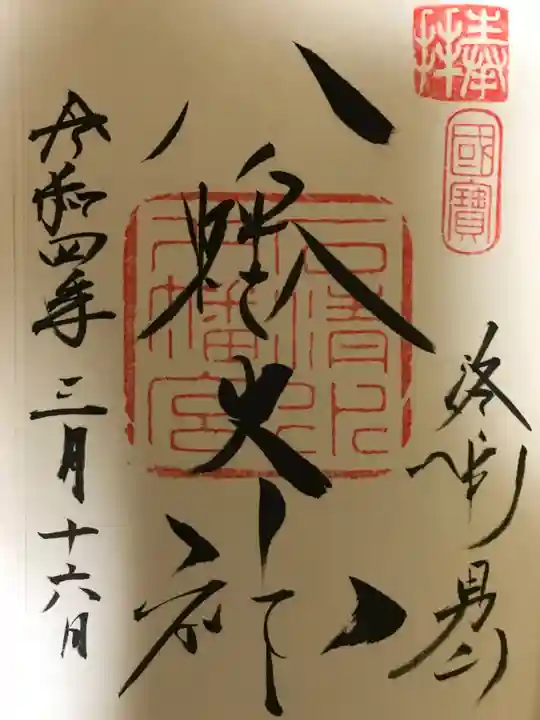 奉拝
國寶
洛南男山
八幡大神
石清水
八幡宮
令和四年三月十六日